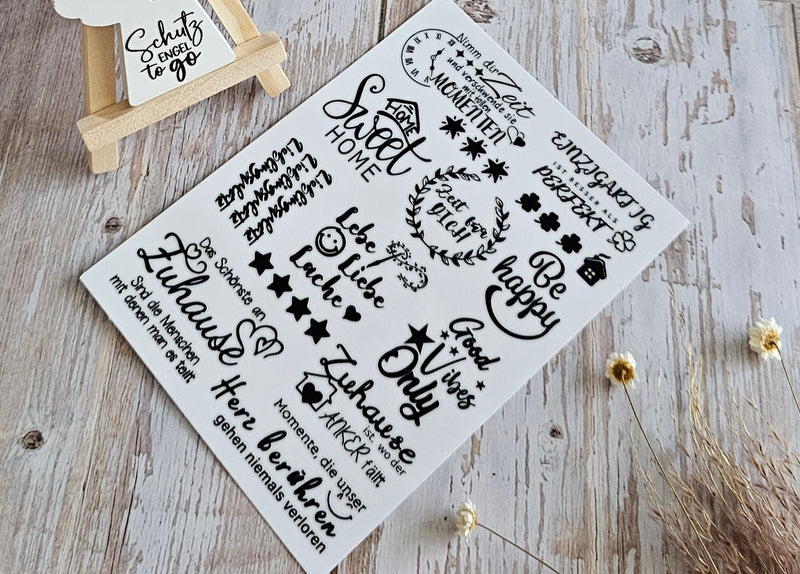 Schutz
ENGEL
to go
Nimm dir
Zeit
und verschwende sie
mit tollen
MOMENTEN
HOME
Sweet
HOME
EINZIGARTIG
IST BESSER ALS
PERFEKT
Lieblingsplatz
Lieblingsplatz
Lieblingsplatz
Zeit für
DICH
Lebe
Liebe
Lache
Be
happy
Das Schönste an
Zuhause
Sind die Menschen
mit denen man es teilt
Good
Vibes
Only
Zuhause
ist, wo der
ANKER fällt
Momente, die unser
Herz berühren
gehen niemals verloren